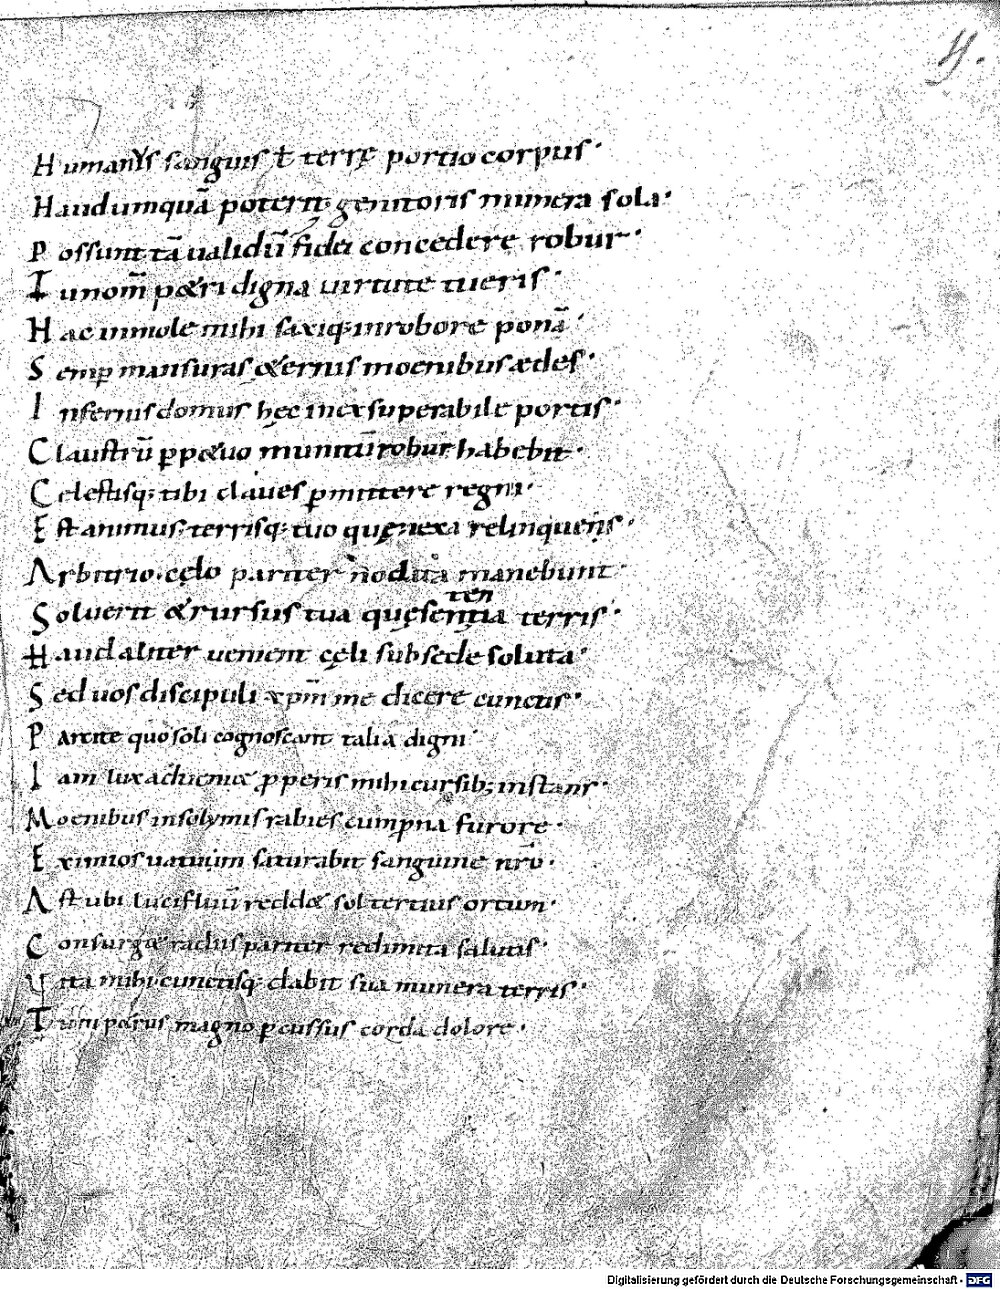 H umanus sanguis ł terrę portio corpus·
H audumquā poterit; genitoris munera sola·
P ossunt tā ualidū fidei concedere robur·
T u nom̄ petri digna uirtute tueris·
H ac in mole mihi saxiq; in robore ponā·
S emp mansuras &ernis moenibus ædes·
I nfernis domus hęc inexsuperabile portis·
C laustrū pp&uo munitū robur habebit·
C elestisq; tibi claues pmittere regni·
E st animus; terrisq; tuo quę nexa relinquens·
A rbitrio·cęlo pariter nodata manebunt·
S oluerit & rursus tua quę sententia terris·
H aud aliter uenient cęli sub sede soluta·
S ed uos discipuli xpm̄ me dicere cunctis·
P arcite quo soli cognoscant talia digni·
I am lux adueni& pperis mihi cursib; instans·
M oenibus insolymis rabies cum prna furore·
E ximios uatum saturabit sanguine nr̄o·
A st ubi luciflūū redd& sol tertius ortum·
C onsurg& radiis pariter redimita salutis·
V ita mihi·cunctisq; dabit sua munera terris·
T um p&rus magno pcussus corda dolore·
Digitalisierung gefördert durch die Deutsche Forschungsgemeinschaft - DFG